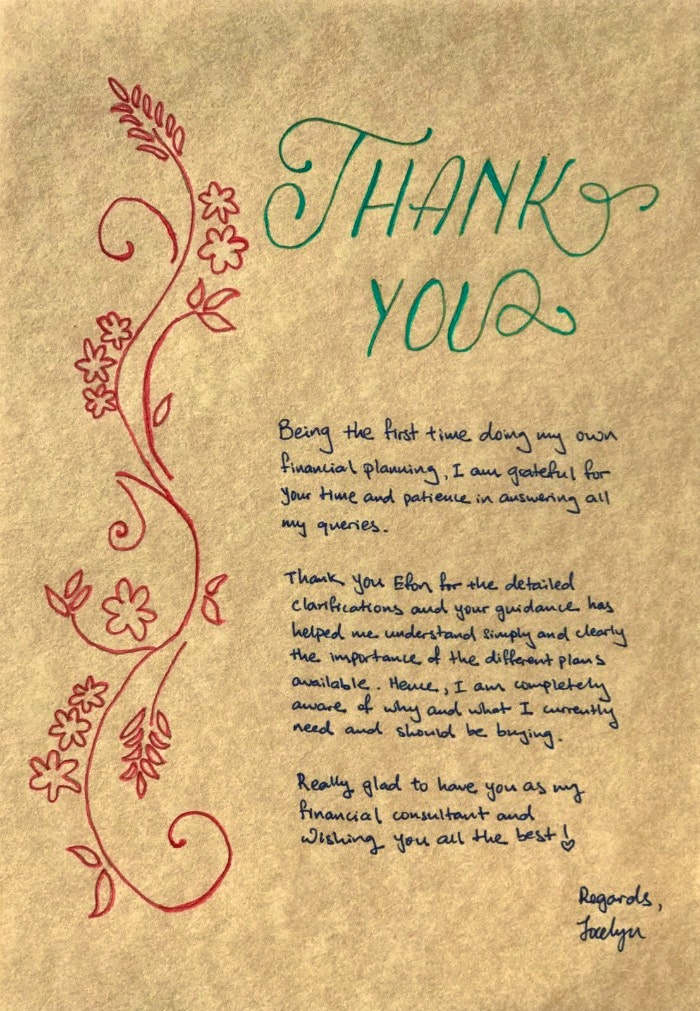 THANK
YOU
Being the first time doing my own
financial planning, I am grateful for
your time and patience in answering all
my queries.
Thank you Efon for the detailed
clarifications and your guidance has
helped me understand simply and clearly
the importance of the different plans
available. Hence, I am completely
aware of why and what I currently
need and should be buying.
Really glad to have you as my
financial consultant and
wishing you all the best!
Regards,
Jocelyn